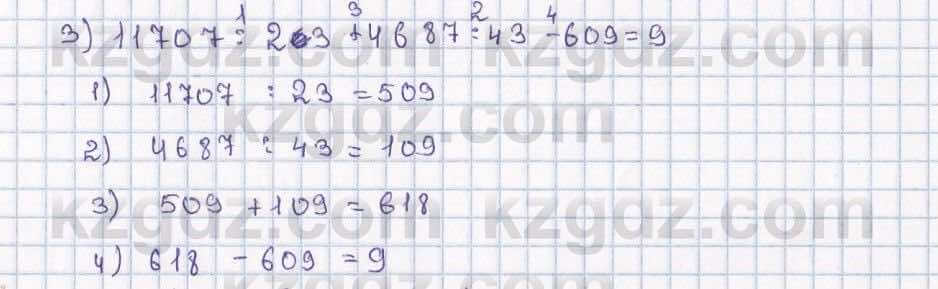 3) 11707 : 23 + 4687 : 43 - 609 = 9
1) 11707 : 23 = 509
2) 4687 : 43 = 109
3) 509 + 109 = 618
4) 618 - 609 = 9
kzgdz.com kzgdz.com
kzgdz.com
kzgdz.com kzgdz.com